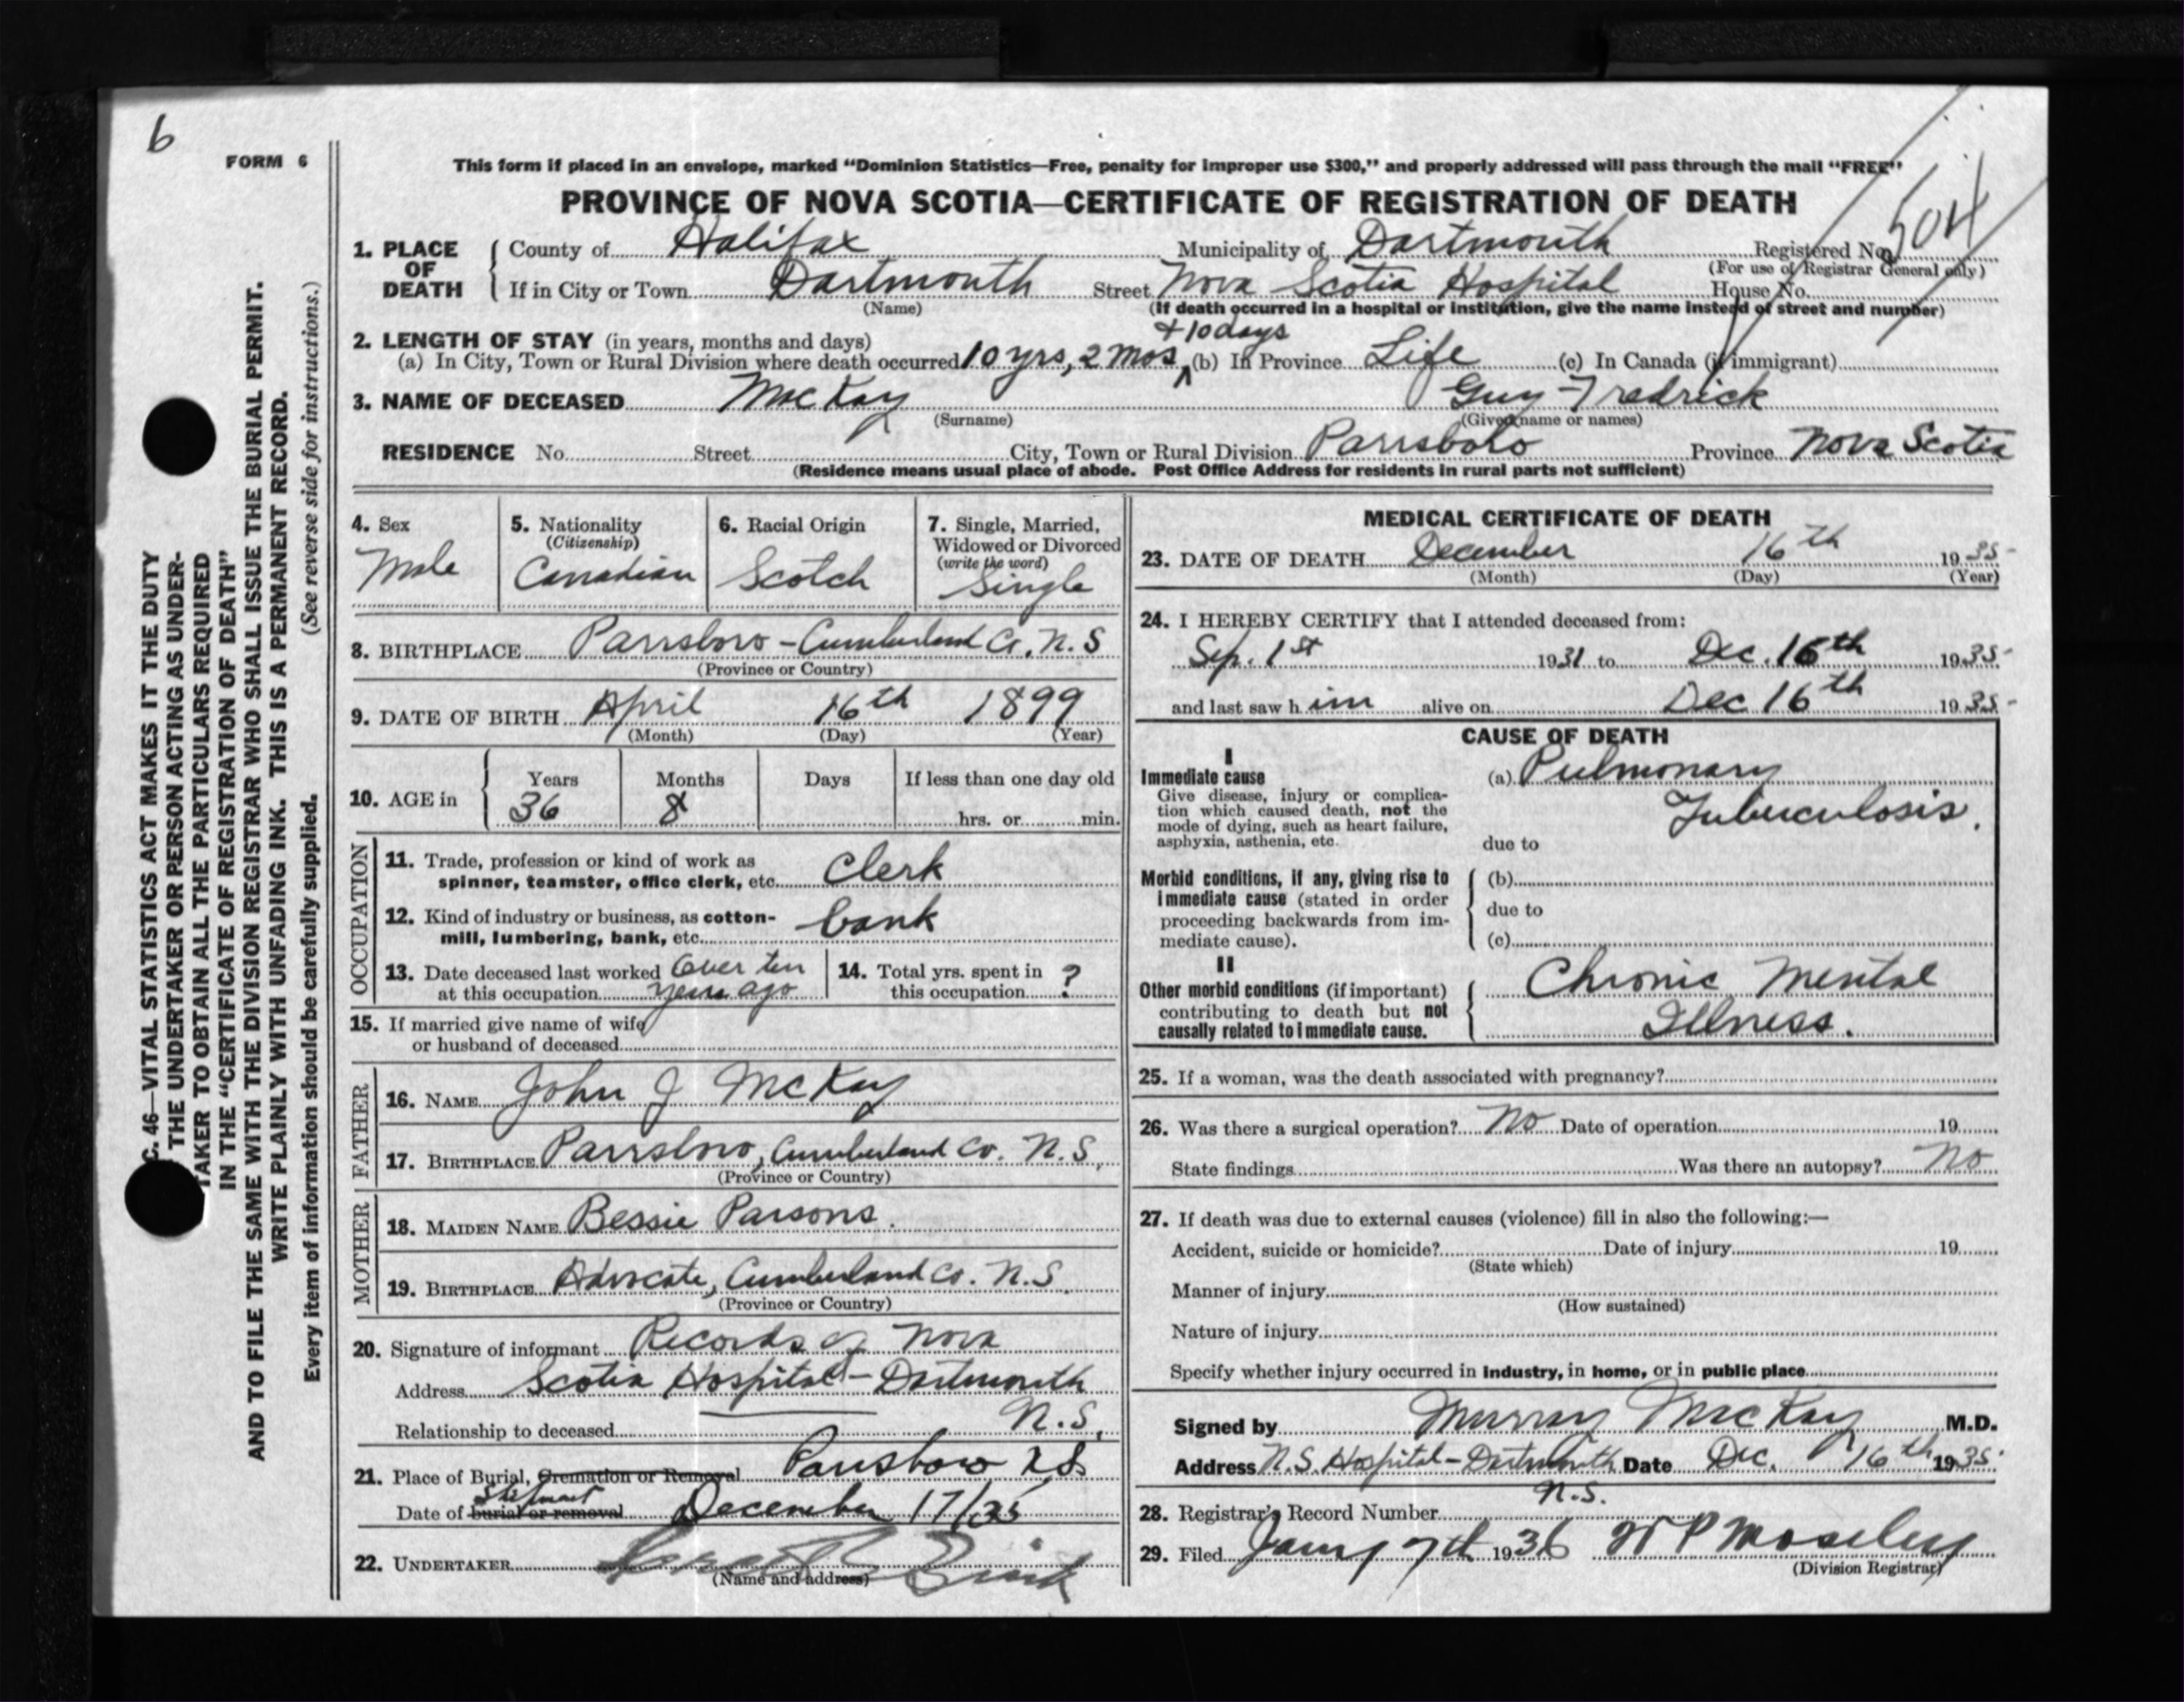 6
FORM 6
This form if placed in an envelope, marked “Dominion Statistics—Free, penalty for improper use $300,” and properly addressed will pass through the mail “FREE”
PROVINCE OF NOVA SCOTIA—CERTIFICATE OF REGISTRATION OF DEATH
1. PLACE OF DEATH County of Halifax Municipality of Dartmouth Registered No. 504
(For use of Registrar General only)
If in City or Town Dartmouth Street Nova Scotia Hospital House No.
(Name) (If death occurred in a hospital or institution, give the name instead of street and number)
2. LENGTH OF STAY (in years, months and days) + 10 days
(a) In City, Town or Rural Division where death occurred 10 yrs, 2 mos, (b) In Province Life (c) In Canada (if immigrant)
3. NAME OF DECEASED MacKay Guy Fredrick
(Surname) (Given name or names)
RESIDENCE No. Street City, Town or Rural Division Parrsboro Province Nova Scotia
(Residence means usual place of abode. Post Office Address for residents in rural parts not sufficient)
4. Sex 5. Nationality 6. Racial Origin 7. Single, Married,
(Citizenship) Widowed or Divorced
(write the word)
Male Canadian Scotch Single
8. BIRTHPLACE Parrsboro - Cumberland Co. N.S
(Province or Country)
9. DATE OF BIRTH April 16th 1899
(Month) (Day) (Year)
10. AGE in Years Months Days If less than one day old
36 8 hrs. or min.
OCCUPATION
11. Trade, profession or kind of work as
spinner, teamster, office clerk, etc. Clerk
12. Kind of industry or business, as cotton-
mill, lumbering, bank, etc. bank
13. Date deceased last worked Over ten
at this occupation years ago
14. Total yrs. spent in
this occupation ?
15. If married give name of wife
or husband of deceased
FATHER
16. NAME John J McKay
17. BIRTHPLACE Parrsboro, Cumberland Co. N.S.
(Province or Country)
MOTHER
18. MAIDEN NAME Bessie Parsons.
19. BIRTHPLACE Advocate, Cumberland Co. N.S.
(Province or Country)
20. Signature of informant Records of Nova
Address Scotia Hospital - Dartmouth
Relationship to deceased N.S.
21. Place of Burial, Cremation or Removal Parrsboro N.S.
Shipment
Date of burial or removal December 17/35
22. UNDERTAKER
(Name and address)
MEDICAL CERTIFICATE OF DEATH
23. DATE OF DEATH December 16th 1935
(Month) (Day) (Year)
24. I HEREBY CERTIFY that I attended deceased from:
Sep. 1st 1931 to Dec. 16th 1935
and last saw him alive on Dec 16th 1935
CAUSE OF DEATH
I
Immediate cause (a) Pulmonary
Give disease, injury or complica-
tion which caused death, not the
mode of dying, such as heart failure,
asphyxia, asthenia, etc.
Tuberculosis.
due to
Morbid conditions, if any, giving rise to
immediate cause (stated in order
proceeding backwards from im-
mediate cause).
(b)
due to
(c)
II
Other morbid conditions (if important)
contributing to death but not
causally related to immediate cause.
Chronic Mental
Illness.
25. If a woman, was the death associated with pregnancy?
26. Was there a surgical operation? No Date of operation 19
State findings Was there an autopsy? No
27. If death was due to external causes (violence) fill in also the following:—
Accident, suicide or homicide? Date of injury 19
(State which)
Manner of injury
(How sustained)
Nature of injury
Specify whether injury occurred in industry, in home, or in public place
Signed by Murray MacKay M.D.
Address N.S. Hospital - Dartmouth Date Dec. 16th 1935
N.S.
28. Registrar's Record Number
29. Filed Jany 7th 1936 W P Moseley
(Division Registrar)
C. 46—VITAL STATISTICS ACT MAKES IT THE DUTY
THE UNDERTAKER OR PERSON ACTING AS UNDER-
TAKER TO OBTAIN ALL THE PARTICULARS REQUIRED
IN THE “CERTIFICATE OF REGISTRATION OF DEATH”
AND TO FILE THE SAME WITH THE DIVISION REGISTRAR WHO SHALL ISSUE THE BURIAL PERMIT.
WRITE PLAINLY WITH UNFADING INK. THIS IS A PERMANENT RECORD.
Every item of information should be carefully supplied. (See reverse side for instructions.)